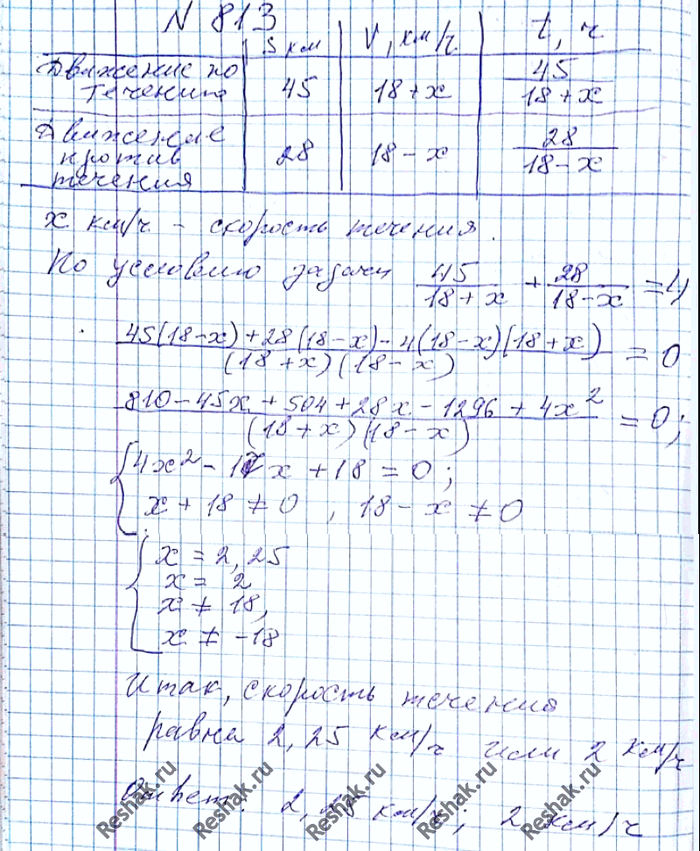 N 813
S км | V, км/ч | t, ч.
Движение по течению | 45 | 18+x | 45/(18+x)
Движение против течения | 28 | 18-x | 28/(18-x)
x км/ч - скорость течения.
По условию задачи 45/(18+x) + 28/(18-x) = 4
(45(18-x)+28(18-x)-4(18-x)(18+x))/((18+x)(18-x)) = 0
(810-45x+504+28x-1296+4x²)/((18+x)(18-x)) = 0;
{ 4x²-17x+18=0;
x+18≠0, 18-x≠0
{ x = 2,25
x = 2
x ≠ 18,
x ≠ -18
Итак, скорость течения
равна 2,25 км/ч или 2 км/ч
Ответ: 2,25 км/ч; 2 км/ч
Reshak.ru Reshak.ru Reshak.ru Reshak.ru Reshak.ru